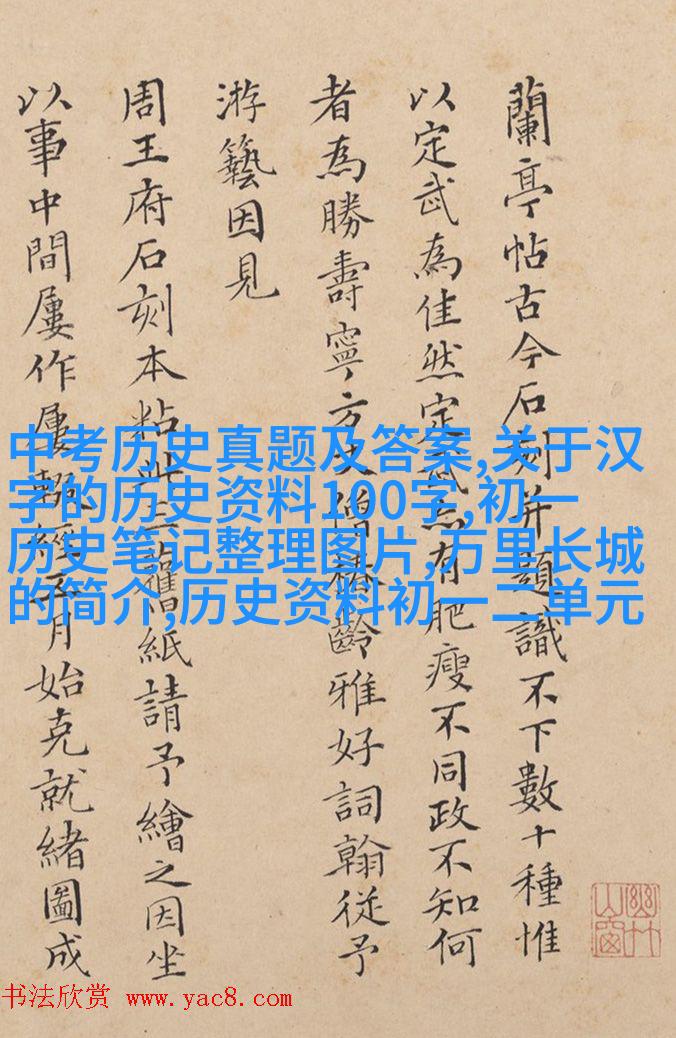 蘭亭帖古今石刻并題識不下數十種惟
以定武為佳然定武亦有肥瘦不同政不知何
者為勝壽寧方僧齡雅好詞翰從予
游藝因見
周王府石刻本粘此舊紙請予繪之因坐
以事中間屢作屢輟經五月始克就緒圖成
幽竹山窗
中考历史真题及答案,关于汉
字的历史资料100字,初一
历史笔记整理图片,万里长城
的简介,历史资料初一二单元
书法欣赏 www.yac8.com